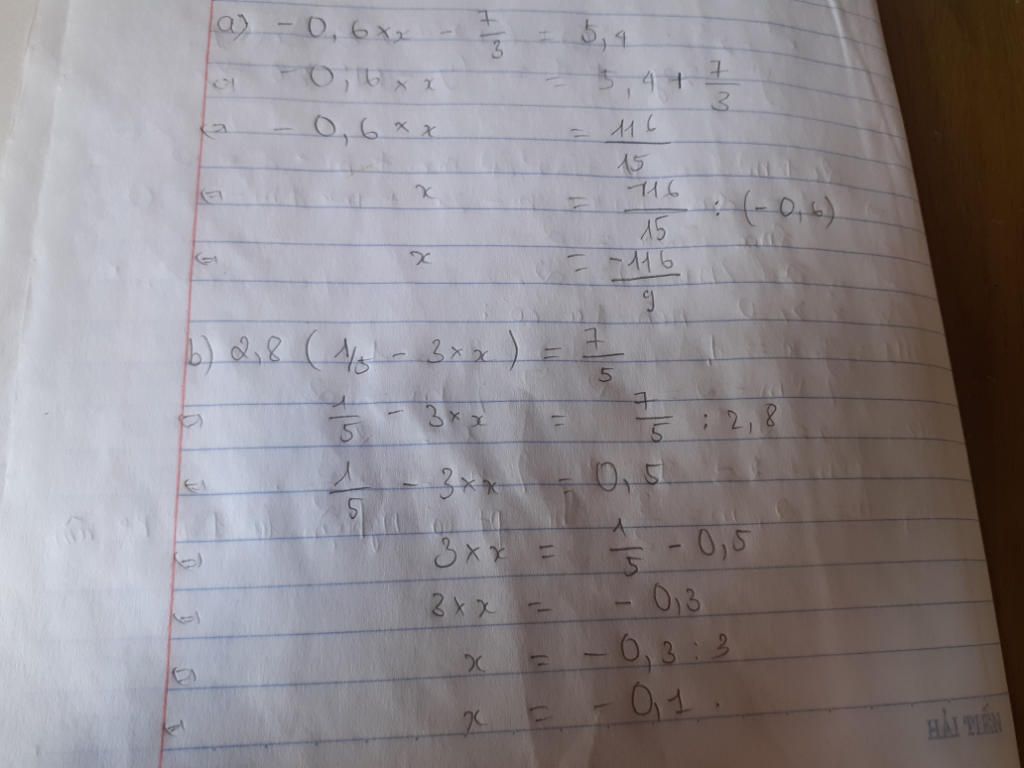 a) - 0,6 × x - 7/3 = 5,4
⇔ - 0,6 × x = 5,4 + 7/3
⇔ - 0,6 × x = 116/15
⇔ x = 116/15 : (- 0,6)
⇔ x = -116/9
b) 2,8 ( 1/5 - 3 × x ) = 7/5
⇔ 1/5 - 3 × x = 7/5 : 2,8
⇔ 1/5 - 3 × x = 0,5
⇔ 3 × x = 1/5 - 0,5
⇔ 3 × x = - 0,3
⇔ x = - 0,3 : 3
⇔ x = - 0,1.
HẢI TIẾN